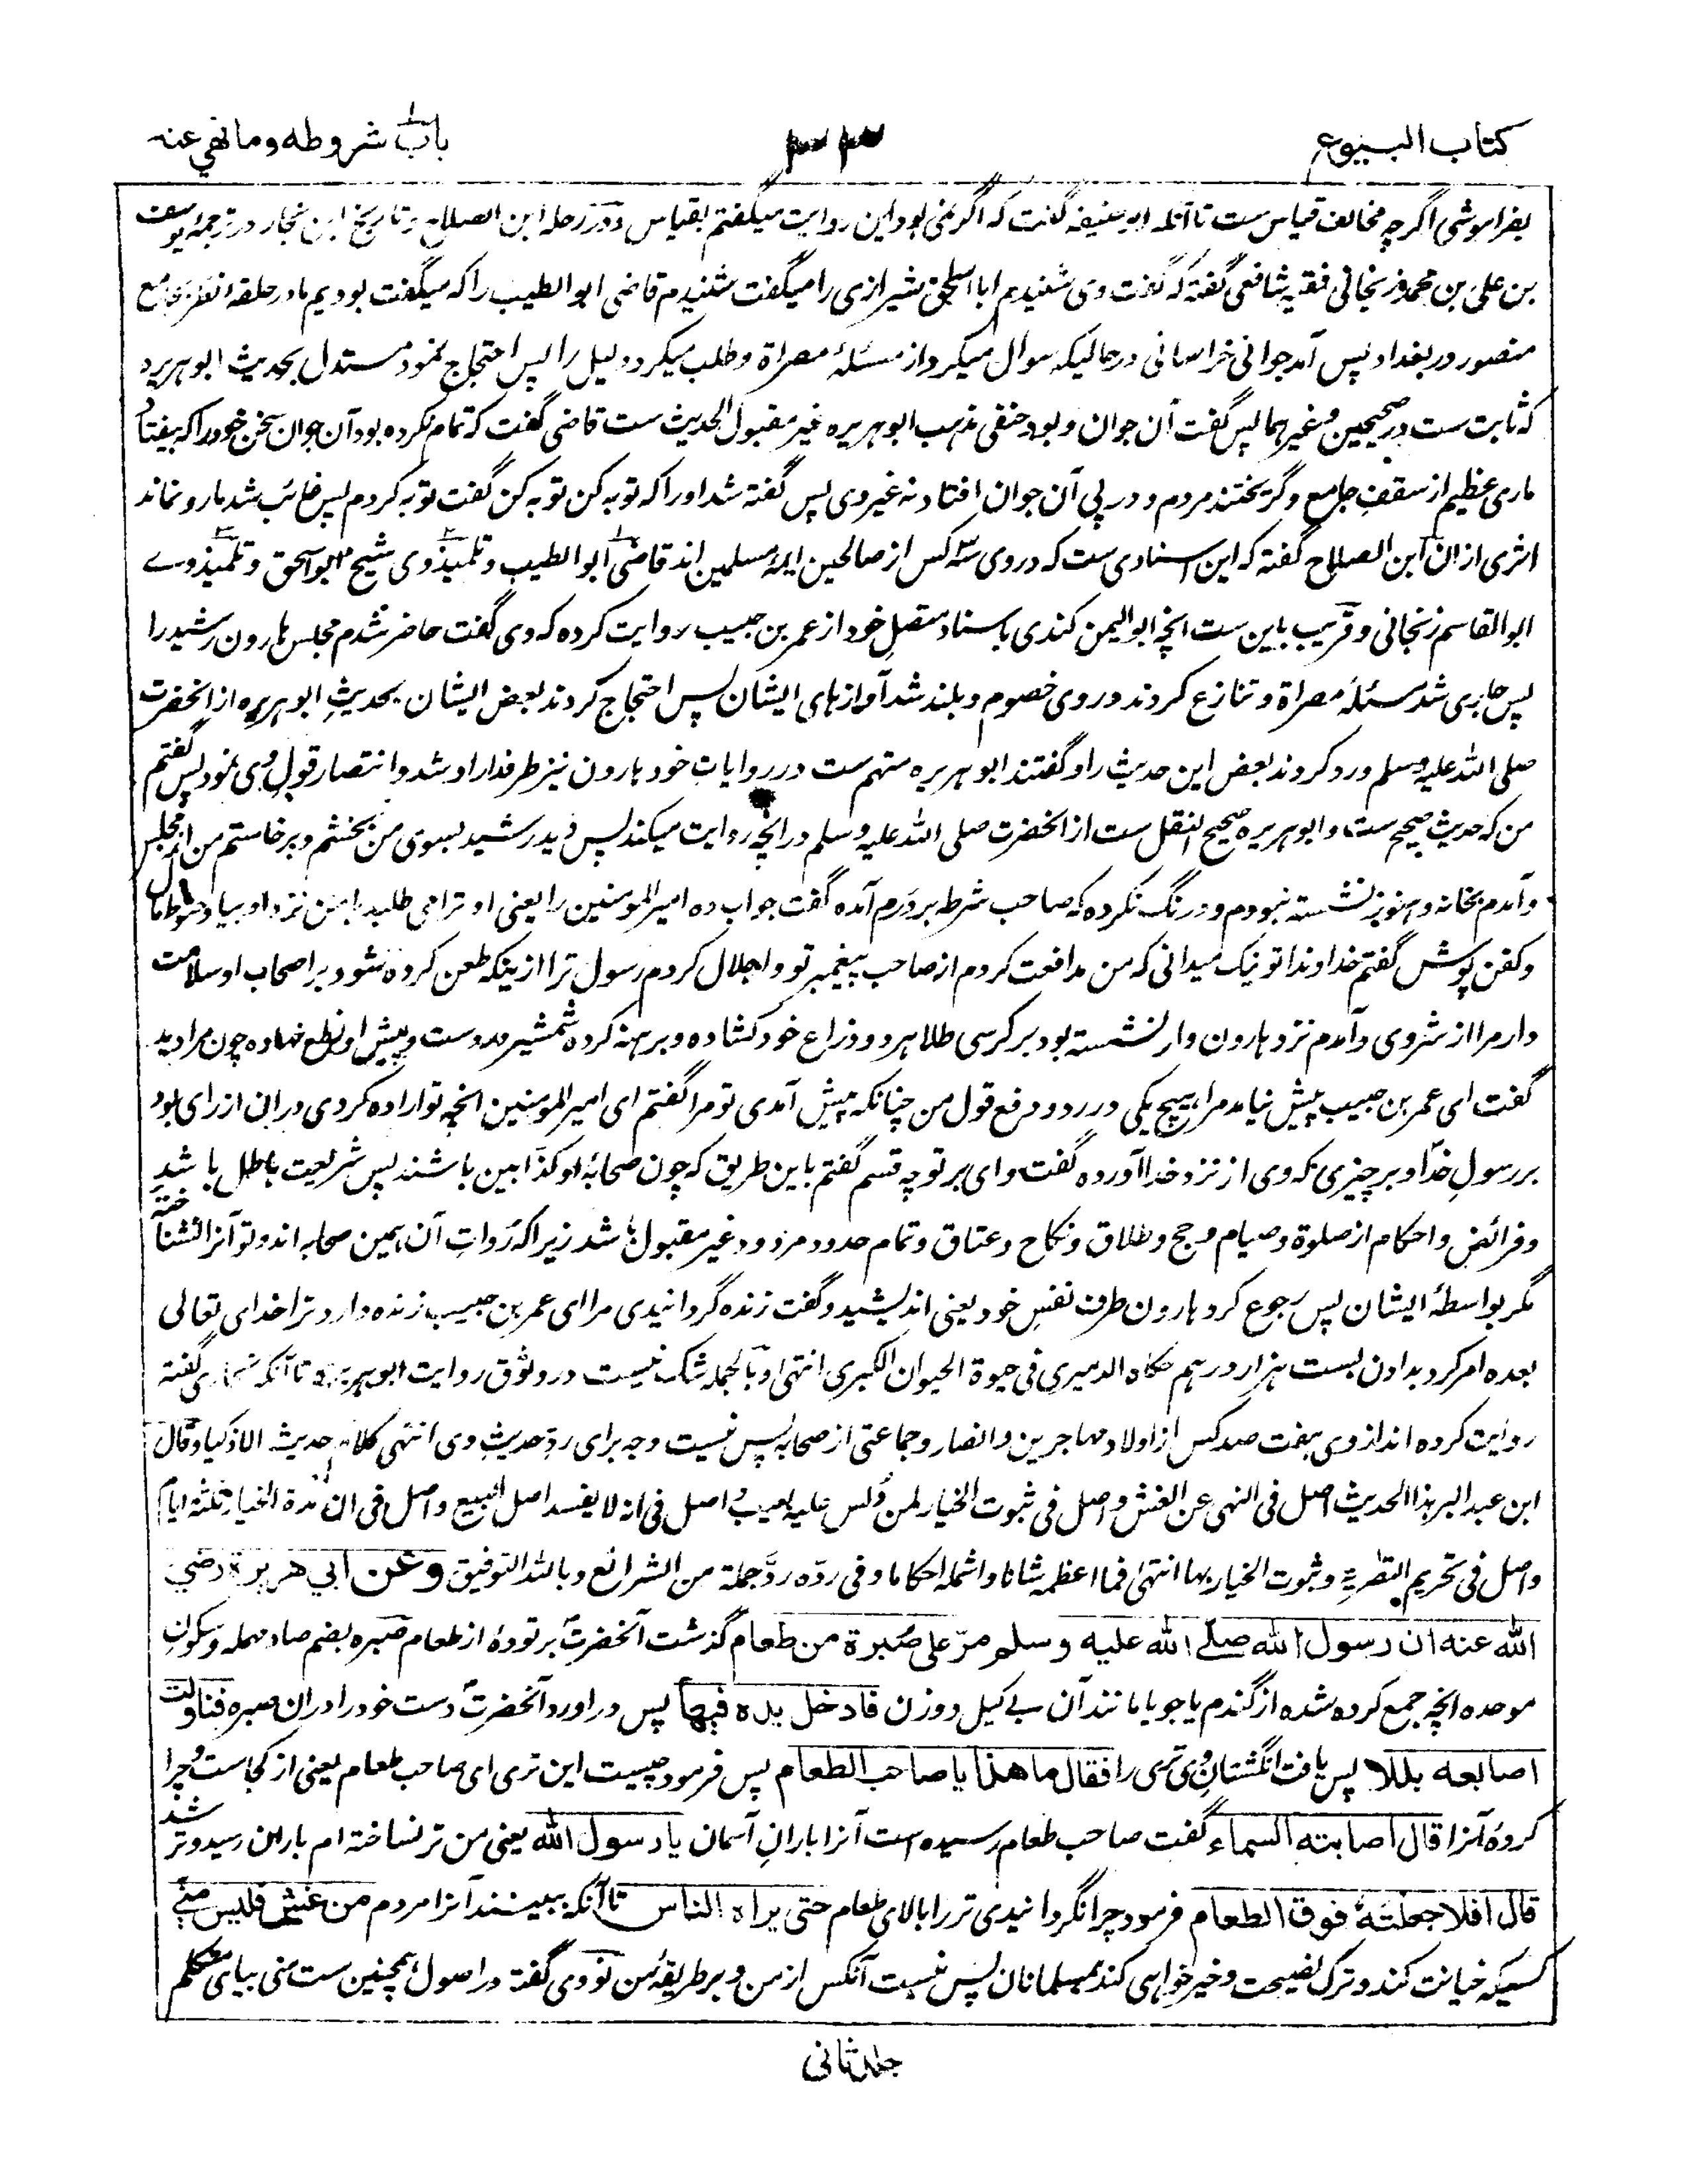 كتاب البيوع
٢٣
باب شروطه وما نهي عنه
بفراموشی اگرچه مخالف قیاس ست تا آنکه ابو حنیفه گفت که اگر نمی بود این روایت میگفتم بقیاس و در رحله ابن الصلاح و تاریخ ابن نجار در ترجمۀ یوسف
بن علی بن محمد زنجانی فقیه شافعی گفته که گفت وی شنیدم ابا اسحق شیرازی را میگفت شنیدم قاضی ابو الطیب را که میگفت بودیم ما در حلقه نظر بجامع
منصور در بغداد پس آمد جوانی خراسانی در حالیکه سوال میکرد از مسئلۀ مصراة و طلب میکرد دلیل را پس احتجاج نمود مستدل بحدیث ابو هریره
که ثابت ست در صحیحین و غیرهما پس گفت آن جوان و بود حنفی مذهب ابو هریره غیر مقبول الحدیث ست قاضی گفت که تمام نکرده بود آن جوان سخن خود را که بیفتاد
ماری عظیم از سقف جامع و گریختند مردم و در پی آن جوان افتاد نه غیر وی پس گفته شد او را که توبه کن توبه کن گفت توبه کردم پس غائب شد مار و نماند
اثری ازان ابن الصلاح گفته که این اسنادی ست که در وی سه کس از صالحین ایمۀ مسلمین اند قاضی ابو الطیب و تلمیذ وی شیخ ابو اسحق و تلمیذ وے
ابو القاسم زنجانی و قریب باین ست انچه ابو الیمن کندی باسناد متصل خود از عمر بن حبیب روایت کرده که وی گفت حاضر شدم مجلس هارون رشید را
پس جاری شد مسئلۀ مصراة و تنازع کردند در وی خصوم و بلند شد آوازهای ایشان پس احتجاج کردند بعض ایشان بحدیث ابو هریره از انحضرت
صلی الله علیه وسلم و رد کردند بعض این حدیث را و گفتند ابو هریره متهم ست در روایات خود هارون نیز طرفدار او شد و انتصار قول وی نمود پس گفتم
من که حدیث صحیح ست و ابو هریره صحیح النقل ست از انحضرت صلی الله علیه وسلم در انچه روایت میکند پس دید رشید بسوی من بخشم و برخاستم من از مجلس
و آمدم بخانه و هنوز ننشسته نبودم و درنگ نکرده که صاحب شرط بر درم آمده گفت جواب ده امیر المومنین را یعنی او ترا می طلبد با من نزد او بیا و حنوط مال
و کفن پوش گفتم خداوندا تو نیک میدانی که من مدافعت کردم از صاحب پیغمبر تو و اجلال کردم رسول ترا ازینکه طعن کرده شود بر اصحاب او سلامت
دار مرا از شر وی و آمدم نزد هارون و او نشسته بود بر کرسی طلا هر دو ذراع خود کشاده و برهنه کرده شمشیر در دست و پیش او نطع نهاده چون مرا دید
گفت ای عمر بن حبیب پیش نیامد مرا هیچ یکی در رد و دفع قول من چنانکه پیش آمدی تو مرا گفتم ای امیر المومنین انچه تو اراده کردی دران ازرای بود
بر رسول خدا و بر چیزی که وی از نزد خدا آورده گفت وای بر تو چه قسم گفتم باین طریق که چون صحابۀ او کذابین باشند پس شریعت باطل باشد
و فرائض و احکام از صلوة و صیام و حج و طلاق و نکاح و عتاق و تمام حدود مردود غیر مقبول باشد زیرا که روات آن همین صحابه اند و تو آنرا نشناخته
مگر بواسطۀ ایشان پس رجوع کرد هارون طرف نفس خود یعنی اندیشید و گفت زنده گردانیدی مرا ای عمر بن حبیب زنده دارد ترا خدای تعالی
بعده امر کرد بدادن بست هزار درهم حکاه الدمیری فی حیوة الحیوان الکبری انتهی و بالجمله شک نیست در وثوق روایت ابو هریره تا آنکه بخاری گفته
روایت کرده اند از وی هفت صد کس از اولاد مهاجرین و انصار و جماعتی از صحابه پس نیست وجه برای رد حدیث وی انتهی کلام حدیث الاذکیا و قال
ابن عبد البر هذا الحدیث اصل فی النهی عن الغش و اصل فی ثبوت الخیار لمن دلس علیه بعیب و اصل فی انه لا یفسد اصل البیع و اصل فی ان مدة الخیار ثلثة ایام
و اصل فی تحریم التصریة و ثبوت الخیار بها انتهی فما اعظمه شانا و اشمله احکاما و فی رده رد جملة من الشرائع و بالله التوفیق وعن ابي هريرة رضي
الله عنه ان رسول الله صلى الله عليه وسلم مر على صبرة من طعام گذشت آنحضرت بر تودۀ از طعام صبره بضم صاد مهمله و سکون
موحده انچه جمع کرده شده از گندم یا جو یا مانند آن بے کیل و وزن فادخل يده فيها پس در اورد آنحضرت دست خود را دران صبره فنالت
اصابعه بللا پس یافت انگشتان وی تری را فقال ما هذا يا صاحب الطعام پس فرمود چیست این تری ای صاحب طعام یعنی از کجاست و چرا
کردۀ آنرا قال اصابته السماء گفت صاحب طعام رسیده است آنرا باران آسمان يا رسول الله یعنی من تر نساخته ام باران رسید و تر شد
قال افلا جعلته فوق الطعام فرمود چرا نگردانیدی تر را بالای طعام حتى يراه الناس تا آنکه ببینند آنرا مردم من غش فليس مني
کسیکه خیانت کند و ترک نصیحت و خیرخواهی کند بمسلمانان پس نیست آنکس از من و بر طریقۀ من نووی گفته در اصول همچنین ست منی بیای متکلم
جلد ثانی